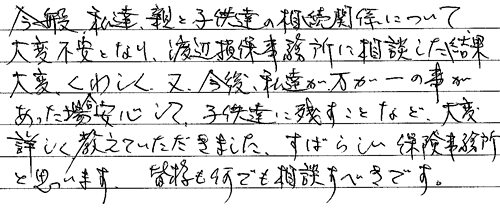 今般、私達、親と子供達の相続関係について
大変不安となり、渡辺損保事務所に相談した結果
大変、くわしく、又、今後、私達が万が一の事が
あった場合安心して、子供達に残すことなど、大変
詳しく教えていただきました、すばらしい保険事務所
と思います、皆様も何でも相談すべきです。